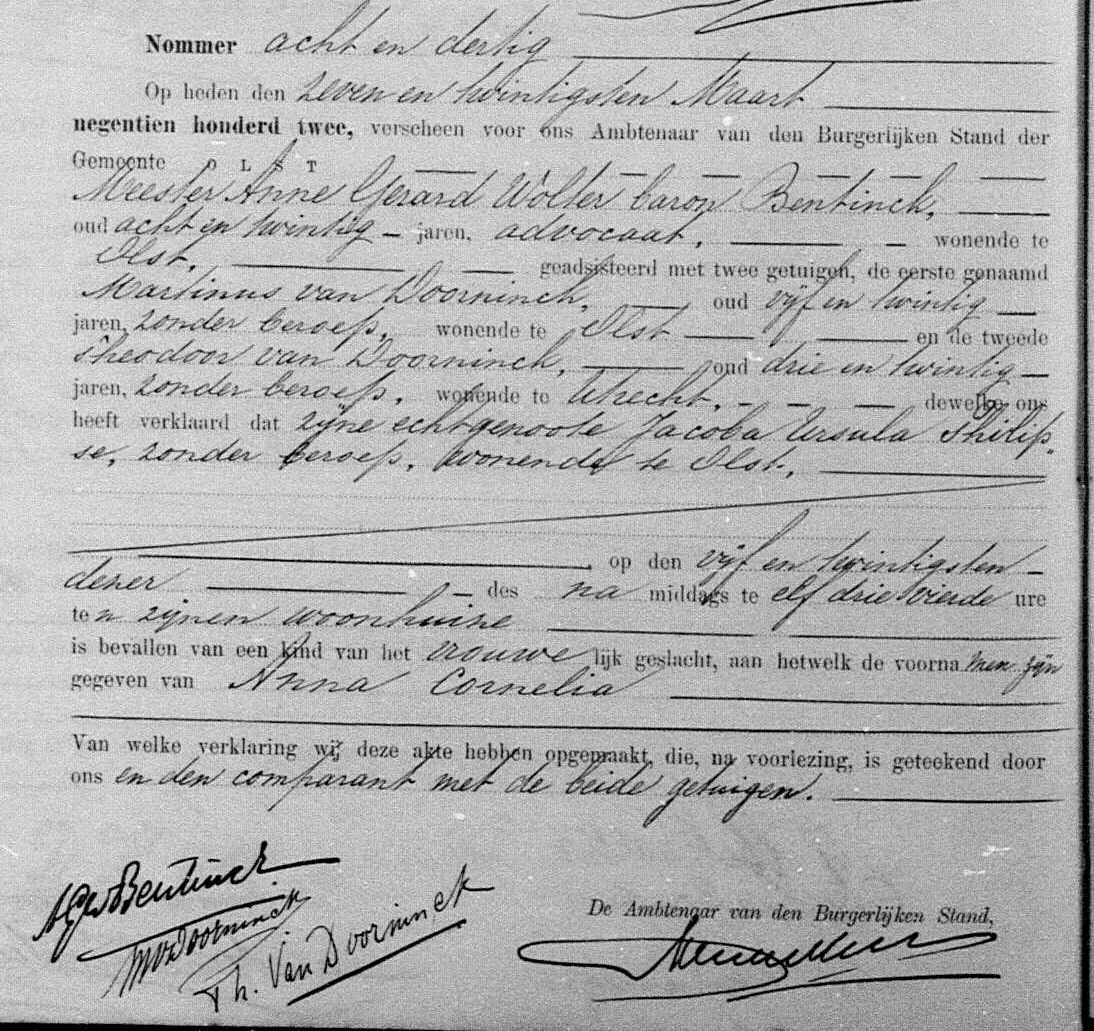 Nommer acht en dertig
Op heden den zeven en twintigsten Maart
negentien honderd twee, verscheen voor ons Ambtenaar van den Burgerlijken Stand der
Gemeente OLST
Meester Anne Gerard Wolter baron Bentinck,
oud acht en twintig jaren, advocaat, wonende te
Olst, geadsisteerd met twee getuigen, de eerste genaamd
Martinus van Doorninck, oud vijf en twintig
jaren, zonder beroep, wonende te Olst en de tweede
Theodoor van Doorninck, oud drie en twintig
jaren, zonder beroep, wonende te Utrecht, dewelke ons
heeft verklaard dat zijne echtgenoote Jacoba Ursula Philip„
se, zonder beroep, wonende te Olst,
op den vijf en twintigsten
dezer des na middags te elf drie vierde ure
ten zijnen woonhuize
is bevallen van een kind van het vrouwelijk geslacht, aan hetwelk de voornamen zijn
gegeven van Anna Cornelia
Van welke verklaring wij deze akte hebben opgemaakt, die, na voorlezing, is geteekend door
ons en den comparant met de beide getuigen.
AGWBentinck
MvDoorninck
Th. Van Doorninck
De Ambtenaar van den Burgerlijken Stand,